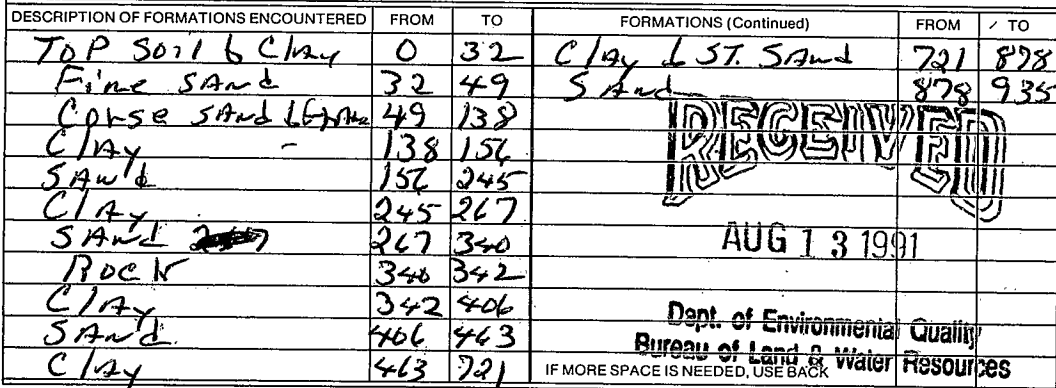 DESCRIPTION OF FORMATIONS ENCOUNTERED FROM TO
Top Soil & Clay 0 32
Fine Sand 32 49
Corse Sand & 49 138
Clay - 138 156
Sand 156 245
Clay 245 267
Sand 267 340
Rock 340 342
Clay 342 406
Sand 406 463
Clay 463 721
FORMATIONS (Continued) FROM TO
Clay & ST. Sand 721 878
Sand 878 935
RECEIVED
AUG 13 1991
Dept. of Environmental Quality
Bureau of Land & Water Resources
IF MORE SPACE IS NEEDED, USE BACK